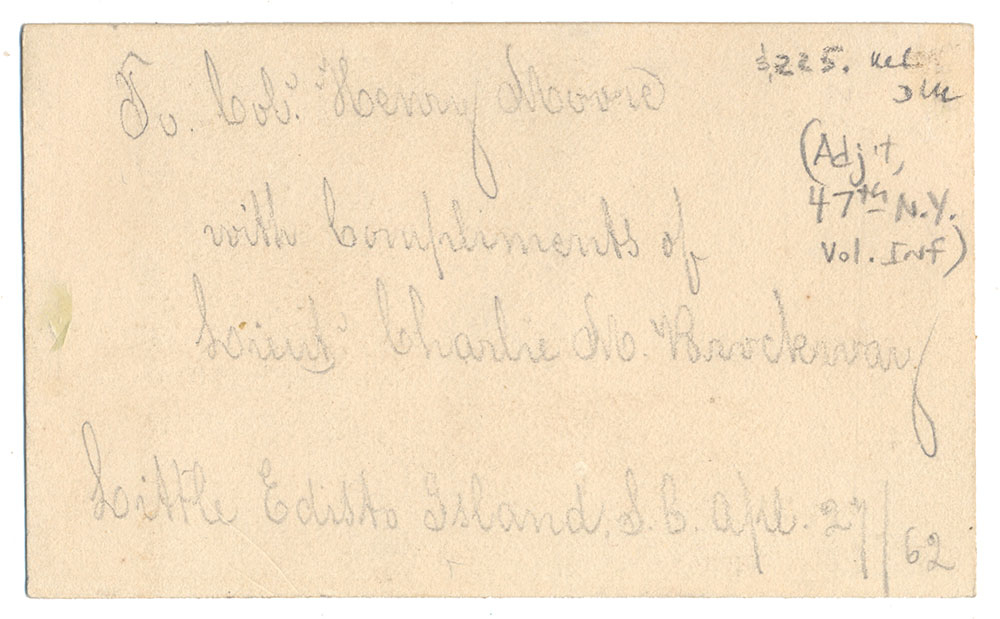 To. Col. Henry Moore
with Compliments of
Lieut. Charlie M. Brockway
Little Edisto Island, S.C. Apl. 27/62
$225.
(Adj't,
47th N.Y.
Vol. Inf)